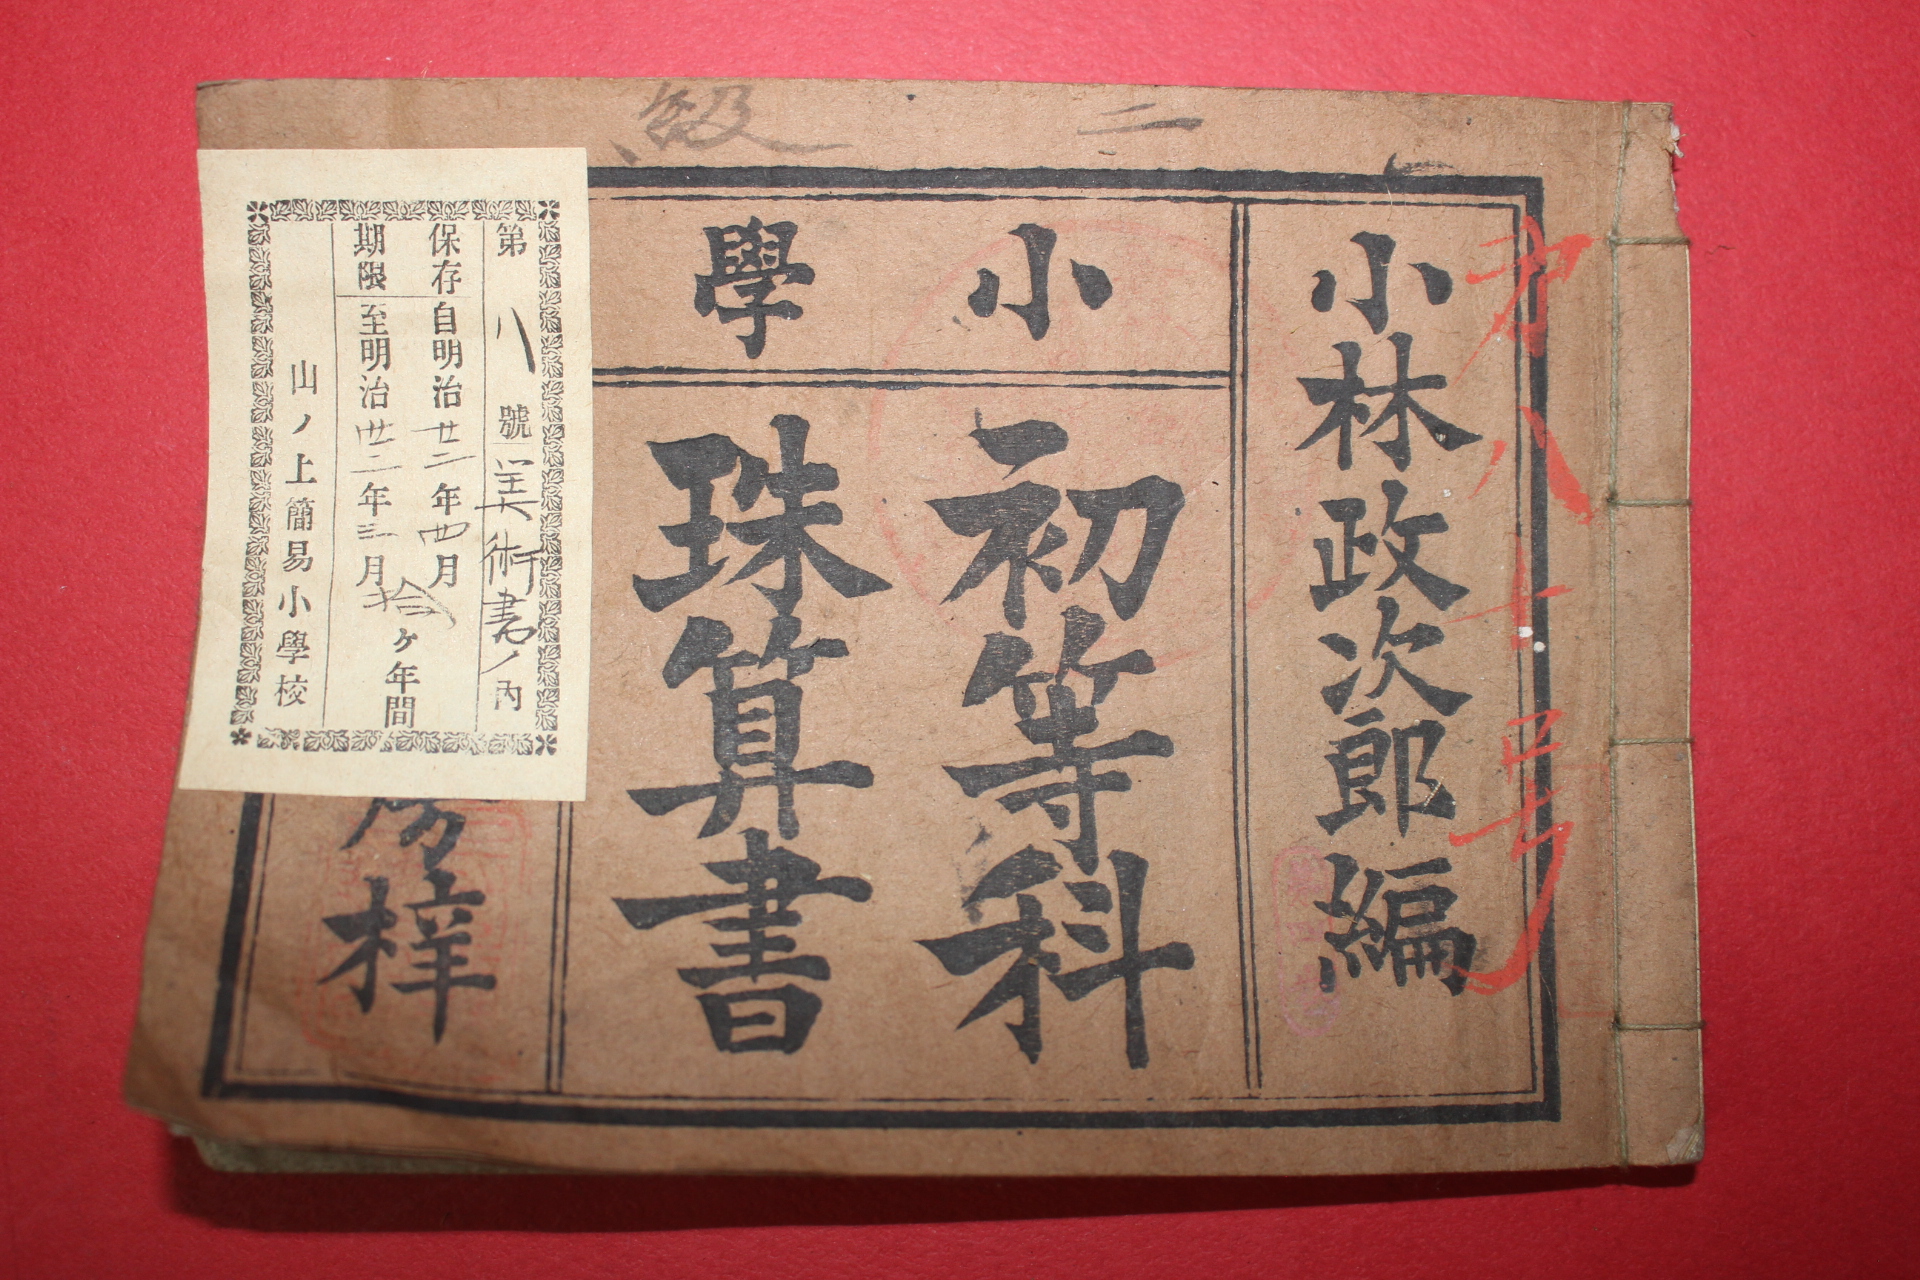 二級
小林政次郎編
小學
初等科
珠算書
梓
第八號
美術書ノ内
保存自明治廿二年四月
期限至明治卅二年三月
拾ヶ年間
山ノ上簡易小學校
八十号